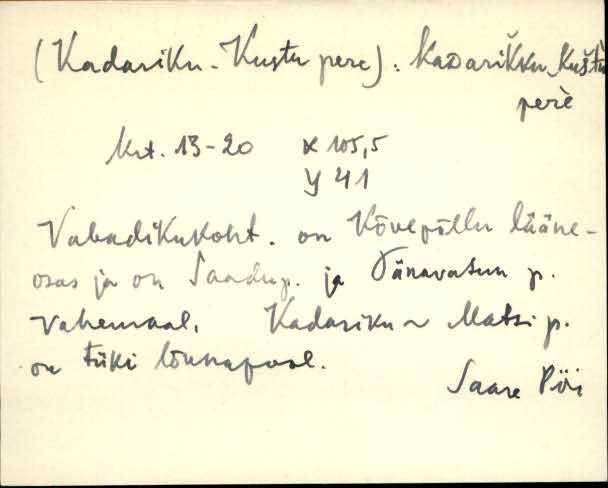 (Kadariku-Kustu pere). kaᴅarik̆ku-kuštu
perè
Krt. 13-20 x 105,5
y 41
Vabadikukoht. on Kõvepõllu lääne-
osas ja on Saadu p. ja Tänavasuu p.
vahemaal. Kadariku ~ Matsi p.
on tüki lõunapool.
Saare Pöi